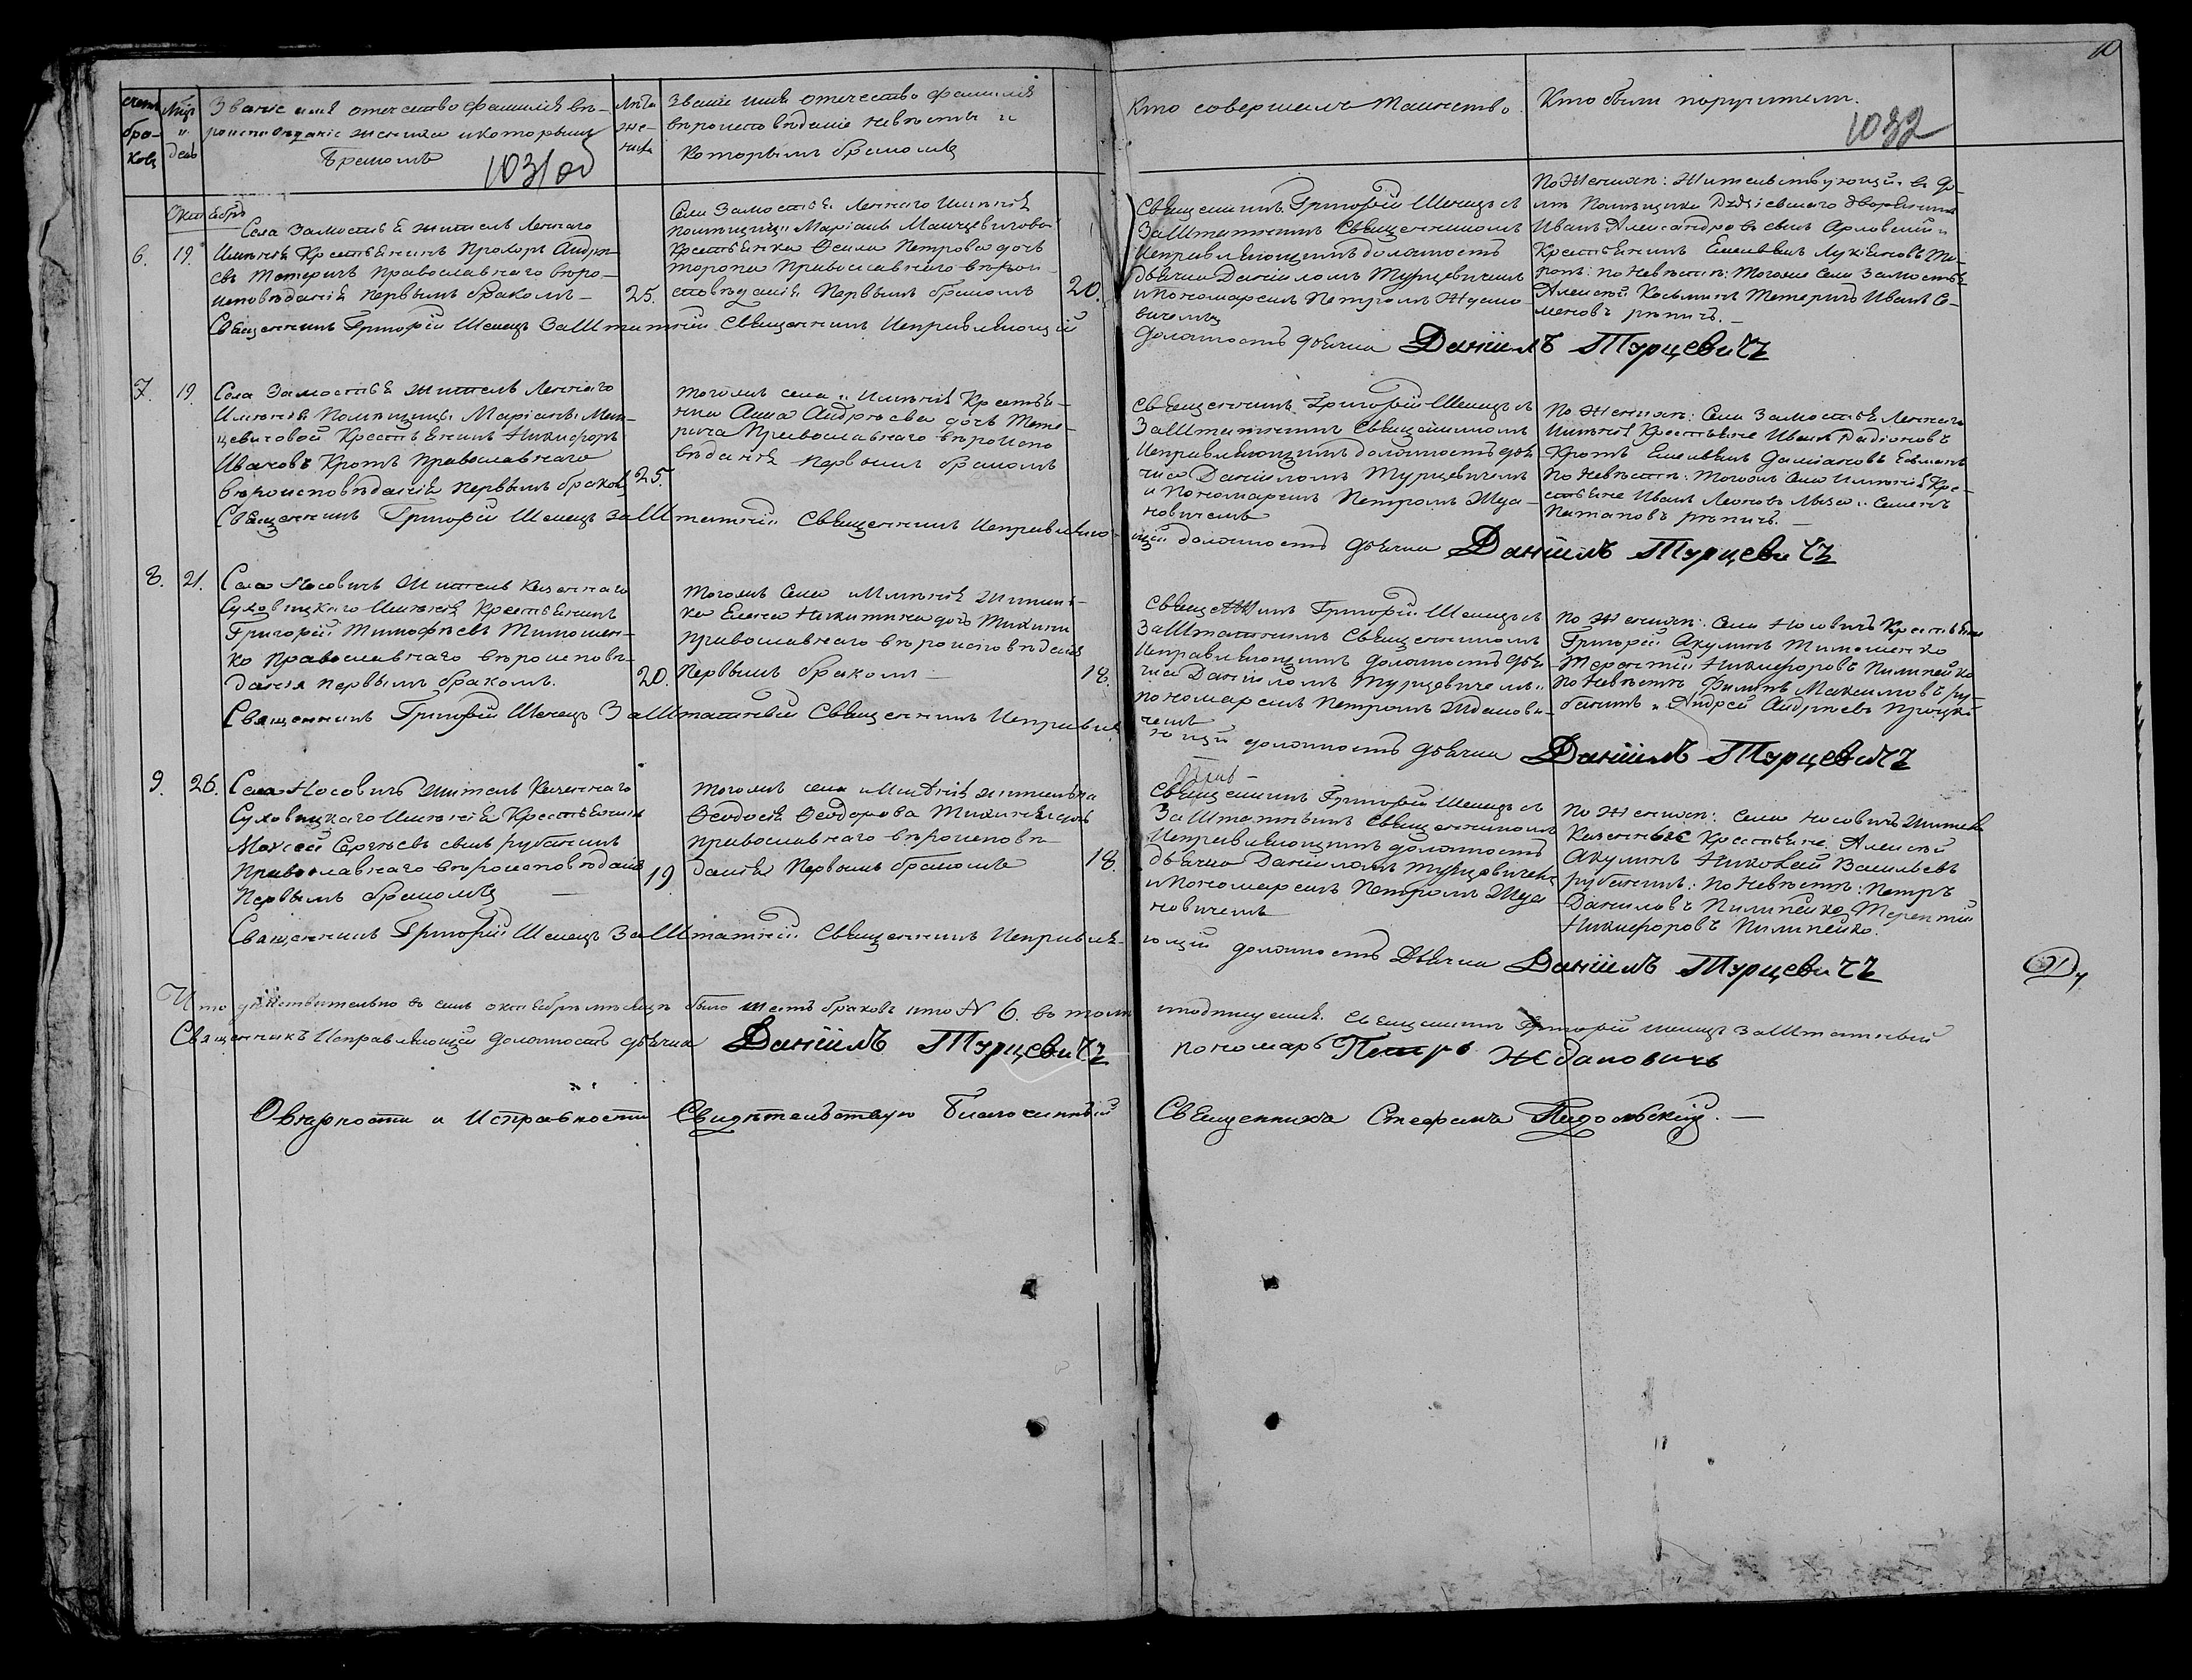 счетъ бра- ковъ
Мцъ и день
Званіе имя отечество фамилія вѣ-
роисповѣданіе жениха и которымъ
бракомъ
1031об
Лѣта же- ниха
Званіе имя отечество фамилія
вѣроисповѣданіе невѣсты и
которымъ бракомъ
Кто совершалъ Таинство.
Кто были поручители.
1032
10
Октябрь
6. 19.
Села Замостья житель Леннаго
Имѣнія Крестьянинъ Прохоръ Андре-
евъ Тетеричъ православнаго вѣро-
исповѣданія первымъ бракомъ —
25.
Села Замостья Леннаго Имѣнія
помѣщицы Маріаны
Крестьянка Петрова дочь
православнаго вѣрои-
сповѣданія Первымъ бракомъ
20.
Священникъ Григорій Шелецъ съ
Заштатнымъ Священникомъ
Исправляющимъ должность
дьячка Даніиломъ Турцевичемъ
и Пономаремъ Петромъ Ждано-
вичемъ
По Женихѣ: Жительствующій въ до-
мѣ Помѣщика дворянинъ
Иванъ Александровъ сынъ Арловскій и
Крестьянинъ Емельянъ Лукьяновъ
по Невѣстѣ: тогожъ Села Замостья
Алексѣй Козьминъ Тетеричъ Иванъ Се-
меновъ рѣпичъ. —
Священникъ Григорій Шелецъ Заштатній Священникъ Исправляющій
должность дьячка Даніилъ Турцевичъ
7. 19.
Села Замостья житель Леннаго
Имѣнія Помѣщицы Маріаны Ман-
цевичовой Крестьянинъ Никифоръ
Ивановъ Кротъ Православнаго
вѣроисповѣданія первымъ бракомъ
25.
тогожъ села и Имѣнія Крестья-
нка Анна Андреева дочь Тете-
рича Православнаго вѣроиспо
вѣданія первымъ бракомъ
Священникъ Григорій Шелецъ съ
Заштатнымъ Священникомъ
Исправляющимъ должность дья-
чка Даніиломъ Турцевичемъ
и Пономаремъ Петромъ Жда-
новичемъ
По Женихѣ: Села Замостья Леннаго
Имѣнія Крестьяне Иванъ Радіоновъ
Кротъ Емельянъ Даміановъ
По Невѣстѣ: Тогожъ Села Имѣнія Кре-
стьяне Иванъ Леоновъ и Семенъ
Патаповъ рѣпичъ. —
Священникъ Григорій Шелецъ Заштатній Священникъ Исправляю-
щій должность дьячка Даніилъ Турцевичъ
8. 21.
Села Носовичъ Житель Казеннаго
Суховицкаго Имѣнія Крестьянинъ
Григорій Тимофѣевъ Тимошен-
ко православнаго вѣроисповѣ-
данія первымъ бракомъ.
20.
тогожъ Села и Имѣнія житель-
ка Елена Никитина дочь
православнаго вѣроисповѣданія
Первымъ бракомъ —
18.
Священникъ Григорій Шелецъ съ
Заштатнымъ Священникомъ
Исправляющимъ должность дья-
чка Даніиломъ Турцевичемъ и
пономаремъ Петромъ Жданови-
чемъ
По Женихѣ: Села Носовичъ Крестьяне
Григорій Акулинъ Тимошенко
Терентій Никифоровъ Пилипейко
по Невѣстѣ Филипъ Максимовъ ру-
банинъ и Андрей Андреевъ
Священникъ Григорій Шелецъ Заштатный Священникъ Исправля-
ющій должность дьячка Даніилъ Турцевичъ
9. 26.
Села Носовичъ житель Казеннаго
Суховицкаго Имѣнія Крестьянинъ
Моисей Сергѣевъ сынъ рубанинъ
Православнаго вѣроисповѣданія
Первымъ бракомъ —
19
тогожъ села и Имѣнія жителька
Ѳеодосія Ѳеодорова дочь
православнаго вѣроисповѣ-
данія Первымъ бракомъ
18.
Священникъ Григорій Шелецъ съ
Заштатнымъ Священникомъ
Исправляющимъ должность
дьячка Даніиломъ Турцевичемъ
и Пономаремъ Петромъ Жда-
новичемъ
По Женихѣ: Села Носовичъ жители
Казенные Крестьяне Алексѣй
Акулинъ Николай Васильевъ
рубанинъ: По Невѣстѣ: Петръ
Даниловъ Пилипейко Терентій
Никифоровъ Пилипейко.
Священникъ Григорій Шелецъ Заштатній Священникъ Исправля-
ющій должность Дьячка Даніилъ Турцевичъ
Что дѣйствительно въ семъ октябрѣ мѣсяцѣ было шесть браковъ итого N 6. въ томъ подписуемся. Священникъ Григорій Шелецъ Заштатный
Священникъ Исправляющій должность дьячка Даніилъ Турцевичъ пономарь Петръ Ждановичъ
О вѣрности и Исправности Свидѣтельствую Благочинный Священникъ Стефанъ Подольскій. —